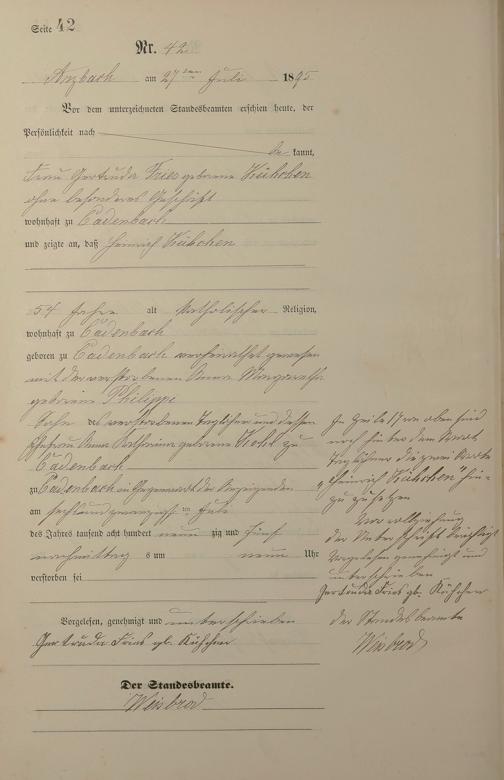 Seite 42
Nr. 42
Arzbach am 27ten Juli 1895
Vor dem unterzeichneten Standesbeamten erschien heute, der
Persönlichkeit nach
be kannt,
Frau Gertruda Fries geborene Kübchen
ohne besonderes Geschäft
wohnhaft zu Cadenbach
und zeigte an, daß Heinrich Kübchen
54 Jahre alt katholischer Religion,
wohnhaft zu Cadenbach
geboren zu Cadenbach verheirathet gewesen
mit der verstorbenen Anna
geborene Philippe
Sohn des verstorbenen Taglöhner und dessen
Ehefrau Anna Katharina geborene zu
Cadenbach
zu Cadenbach in Gegenwart der Anzeigenden
am sechsundzwanzigsten Juli
des Jahres tausend acht hundert neun zig und fünf
nachmittags um neun Uhr
verstorben sei
Vorgelesen, genehmigt und unterschrieben
Gertruda Fries gb. Kübchen
Der Standesbeamte.
Weisbrod
In Zeile von oben sind
noch hinter dem Wort
Taglöhner die zwei Worte
„Heinrich Kübchen" hin-
zu zusetzen
Vorgelesen genehmigt und
unterschrieben
Gertruda Fries gb. Kübchen
der Standesbeamte
Weisbrod